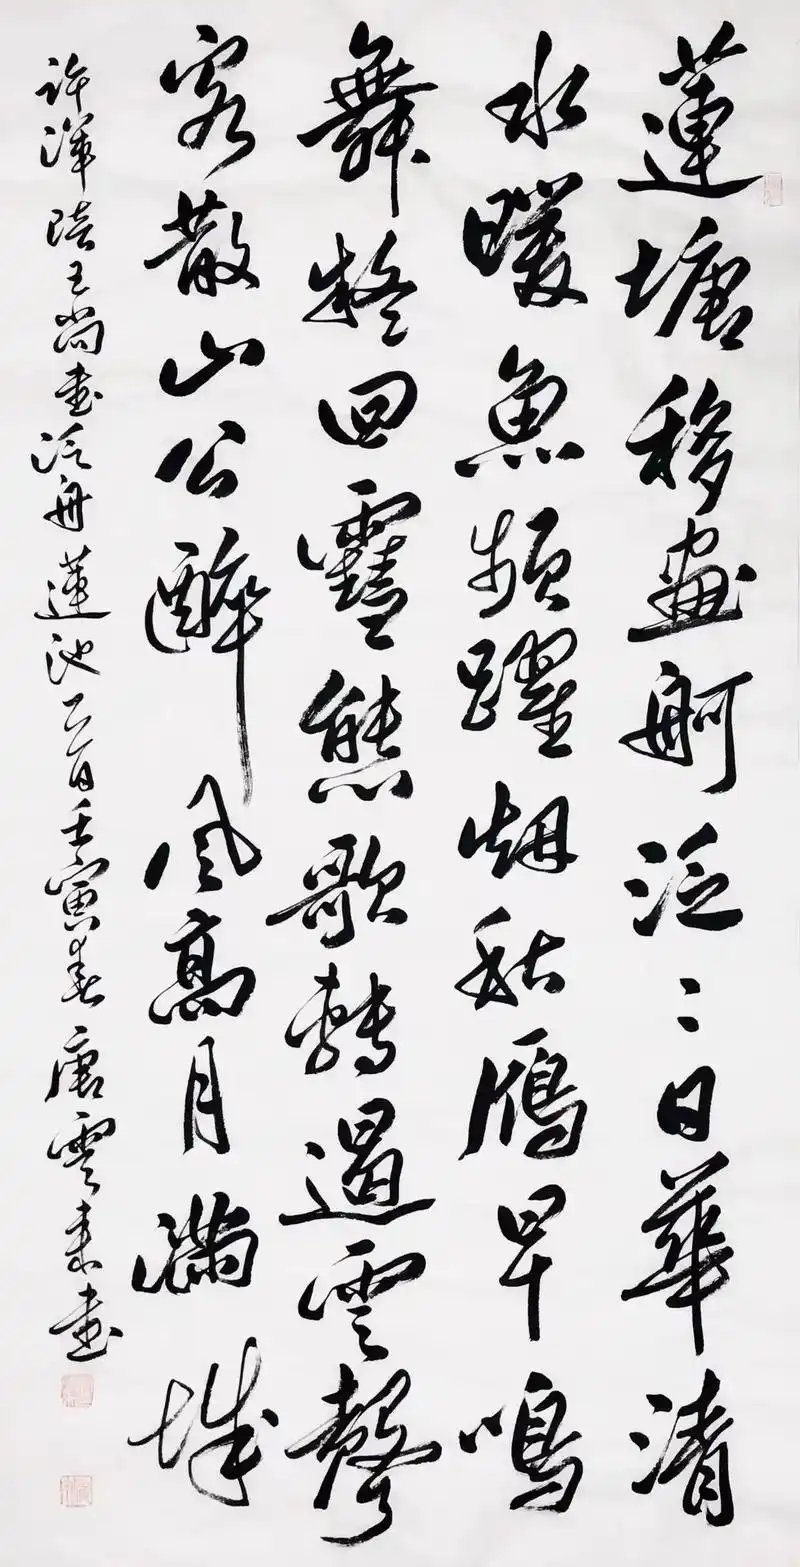 蓮塘移畫舸泛〻日華清
水暖魚頻躍烟秋鴈早鳴
舞疑回雪態歌轉遏雲聲
客散山公醉風高月滿城
許渾陪王尚書泛舟蓮池 壬寅春唐雲來書